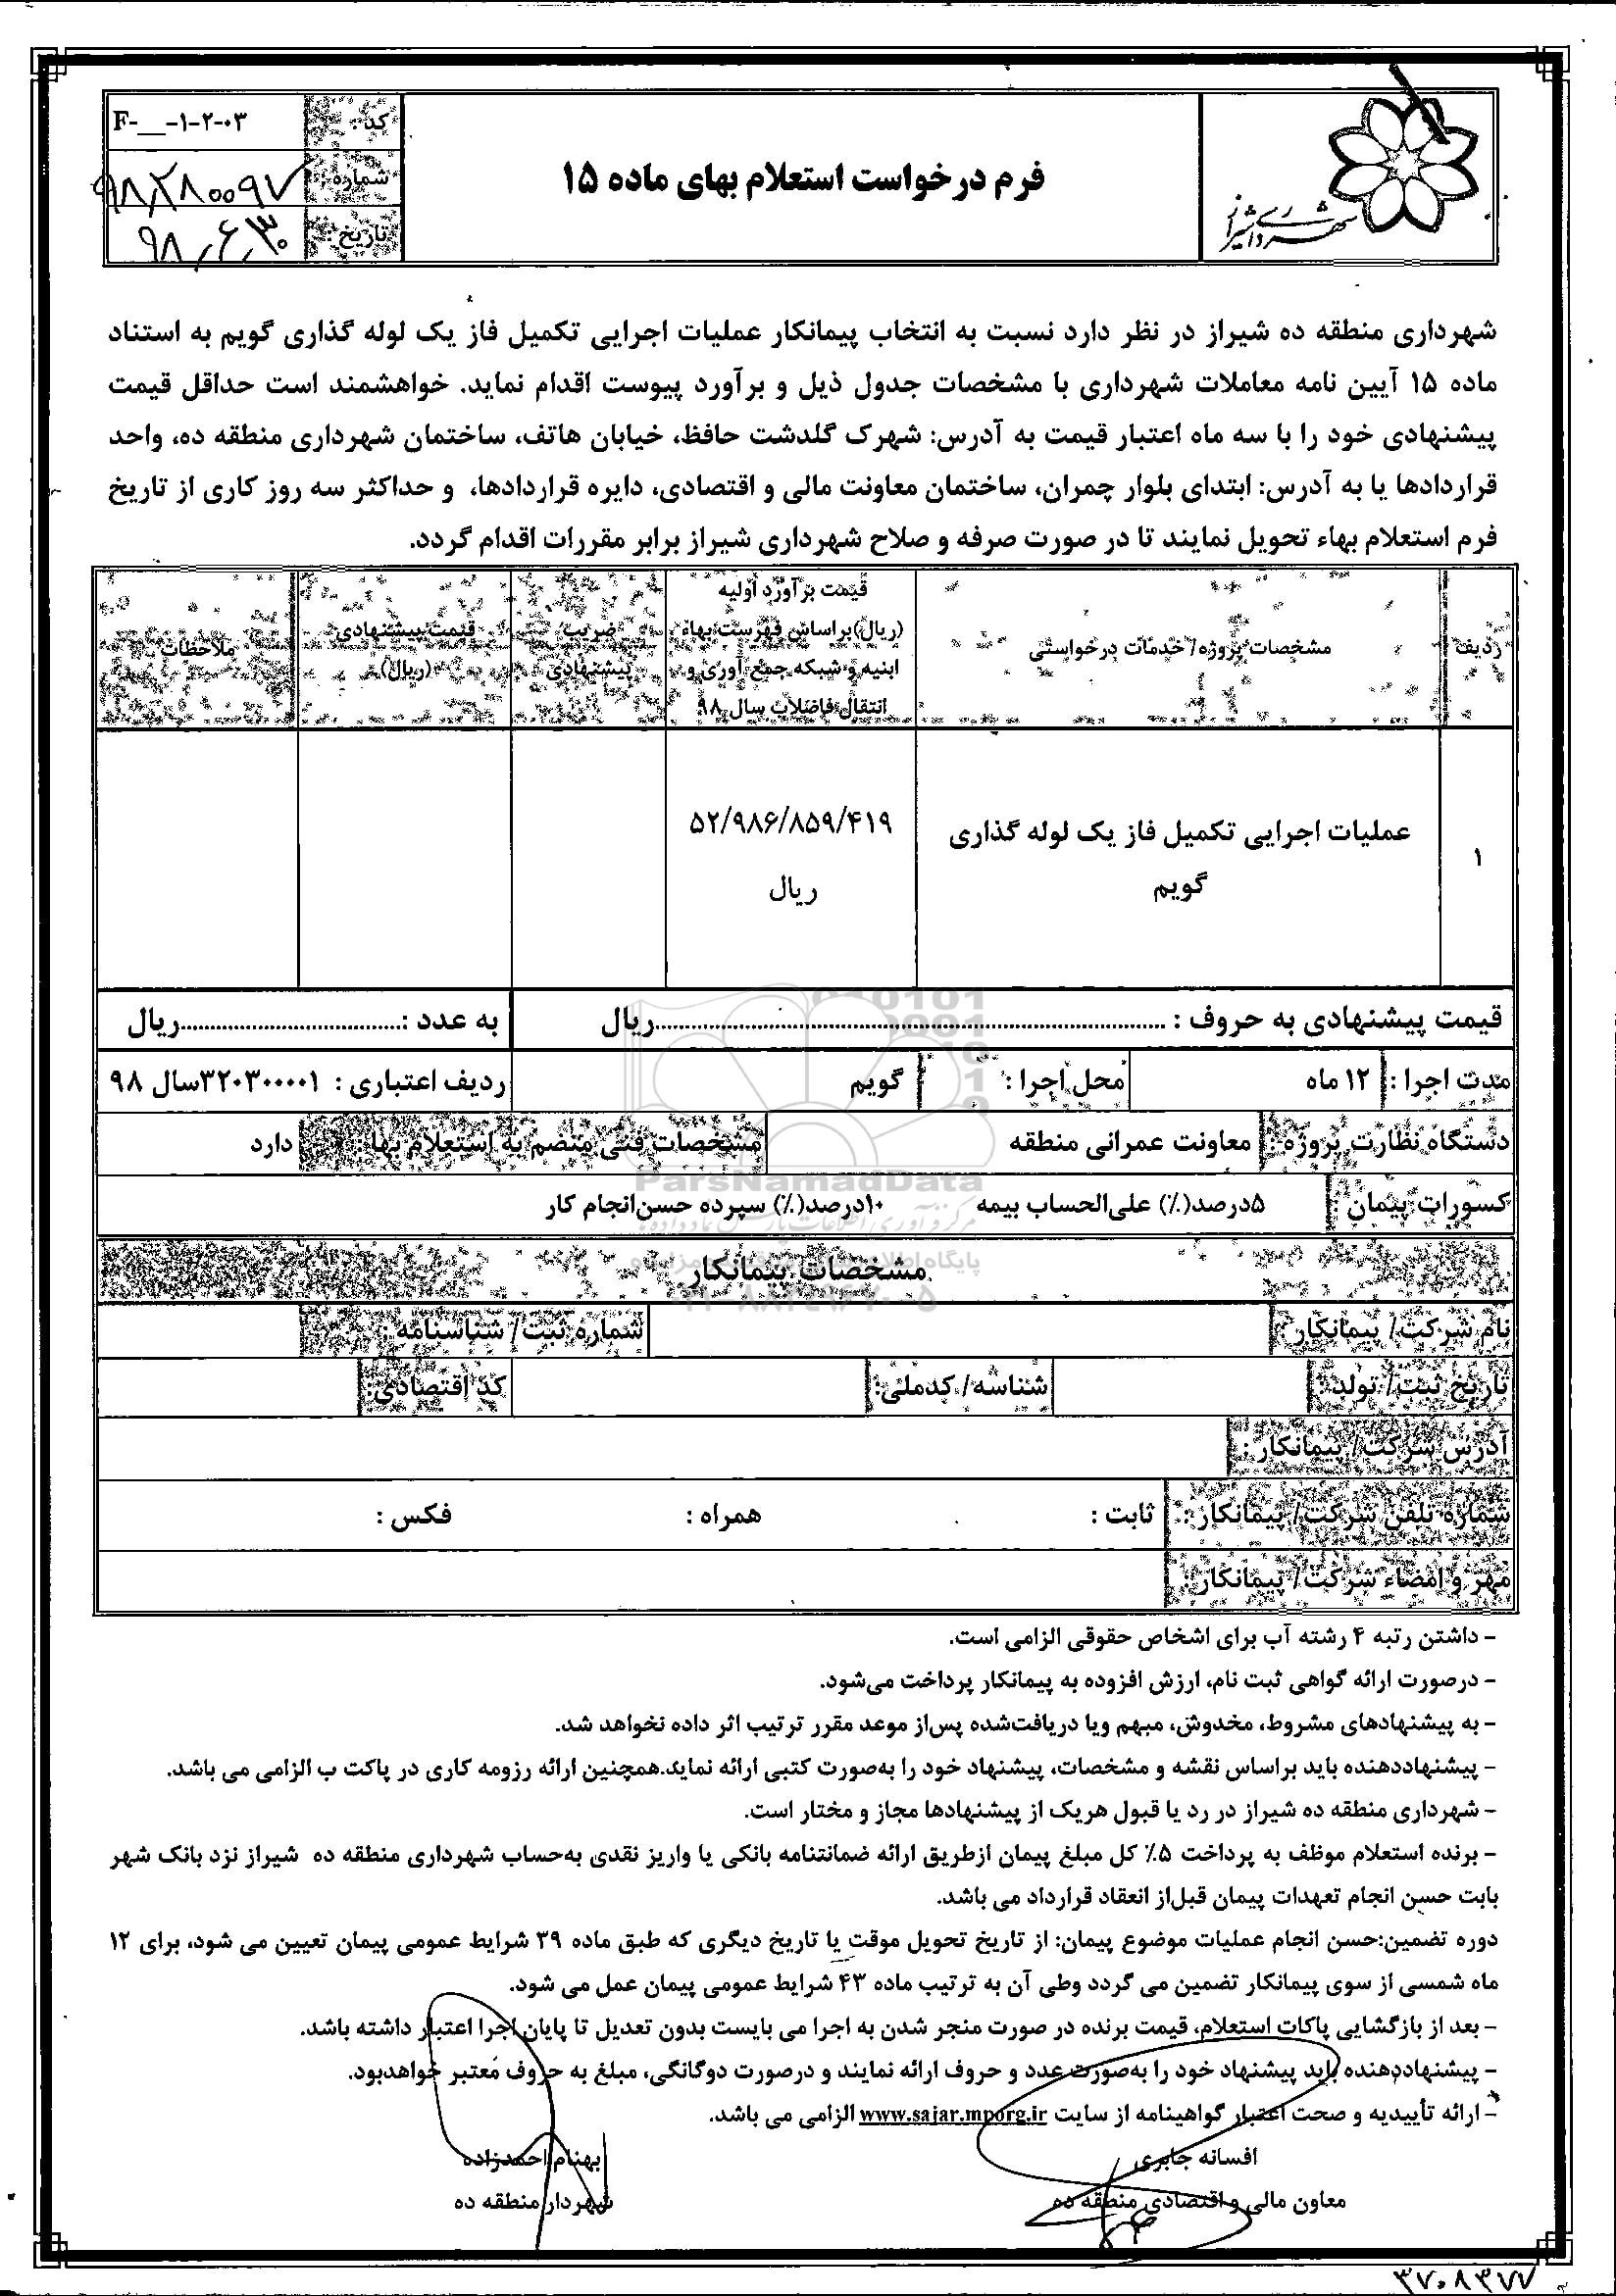 شهرداری شیراز
فرم درخواست استعلام بهای ماده ۱۵
کد :
F-__-۱-۲-۰۳
شماره :
۹۸/۲۸۰۰۹۷
تاریخ :
۹۸,۶,۳۰
شهرداری منطقه ده شیراز در نظر دارد نسبت به انتخاب پیمانکار عملیات اجرایی تکمیل فاز یک لوله گذاری گویم به استناد
ماده ۱۵ آیین نامه معاملات شهرداری با مشخصات جدول ذیل و برآورد پیوست اقدام نماید. خواهشمند است حداقل قیمت
پیشنهادی خود را با سه ماه اعتبار قیمت به آدرس: شهرک گلدشت حافظ، خیابان هاتف، ساختمان شهرداری منطقه ده، واحد
قراردادها یا به آدرس: ابتدای بلوار چمران، ساختمان معاونت مالی و اقتصادی، دایره قراردادها، و حداکثر سه روز کاری از تاریخ
فرم استعلام بهاء تحویل نمایند تا در صورت صرفه و صلاح شهرداری شیراز برابر مقررات اقدام گردد.
ردیف
مشخصات پروژه/ خدمات درخواستی
قیمت برآورد اولیه
(ریال)براساس فهرست بهاء
ابنیه و شبکه جمع آوری و
انتقال فاضلاب سال ۹۸
ضریب
پیشنهادی
قیمت پیشنهادی
(ریال)
ملاحظات
۱
عملیات اجرایی تکمیل فاز یک لوله گذاری
گویم
۵۲/۹۸۶/۸۵۹/۴۱۹
ریال
قیمت پیشنهادی به حروف : ........................................ریال
به عدد :....................................ریال
مدت اجرا : ۱۲ ماه
محل اجرا : گویم
ردیف اعتباری : ۳۲۰۳۰۰۰۰۱سال ۹۸
دستگاه نظارت پروژه : معاونت عمرانی منطقه
مشخصات فنی منضم به استعلام بها : دارد
ParsNamadData
کسورات پیمان : ۵درصد(٪) علی‌الحساب بیمه ۱۰درصد(٪) سپرده حسن‌انجام کار
مشخصات پیمانکار
نام شرکت/ پیمانکار :
شماره ثبت/ شناسنامه :
تاریخ ثبت/ تولد :
شناسه/ کدملی:
کد اقتصادی:
آدرس شرکت/ پیمانکار :
شماره تلفن شرکت/ پیمانکار : ثابت : همراه : فکس :
مهر و امضاء شرکت/ پیمانکار :
- داشتن رتبه ۴ رشته آب برای اشخاص حقوقی الزامی است.
- درصورت ارائه گواهی ثبت نام، ارزش افزوده به پیمانکار پرداخت می‌شود.
- به پیشنهادهای مشروط، مخدوش، مبهم ویا دریافت‌شده پس‌از موعد مقرر ترتیب اثر داده نخواهد شد.
- پیشنهاددهنده باید براساس نقشه و مشخصات، پیشنهاد خود را به‌صورت کتبی ارائه نماید.همچنین ارائه رزومه کاری در پاکت ب الزامی می باشد.
- شهرداری منطقه ده شیراز در رد یا قبول هریک از پیشنهادها مجاز و مختار است.
- برنده استعلام موظف به پرداخت ۵٪ کل مبلغ پیمان ازطریق ارائه ضمانتنامه بانکی یا واریز نقدی به‌حساب شهرداری منطقه ده شیراز نزد بانک شهر
بابت حسن انجام تعهدات پیمان قبل‌از انعقاد قرارداد می باشد.
دوره تضمین:حسن انجام عملیات موضوع پیمان: از تاریخ تحویل موقت یا تاریخ دیگری که طبق ماده ۳۹ شرایط عمومی پیمان تعیین می شود، برای ۱۲
ماه شمسی از سوی پیمانکار تضمین می گردد وطی آن به ترتیب ماده ۴۳ شرایط عمومی پیمان عمل می شود.
- بعد از بازگشایی پاکات استعلام، قیمت برنده در صورت منجر شدن به اجرا می بایست بدون تعدیل تا پایان اجرا اعتبار داشته باشد.
- پیشنهاددهنده باید پیشنهاد خود را به‌صورت عدد و حروف ارائه نمایند و درصورت دوگانگی، مبلغ به حروف معتبر خواهدبود.
- ارائه تأییدیه و صحت اعتبار گواهینامه از سایت www.sajar.mporg.ir الزامی می باشد.
افسانه جابری
معاون مالی و اقتصادی منطقه ده
بهنام احمدزاده
شهردار منطقه ده
۳۷۰۸۳۷۷